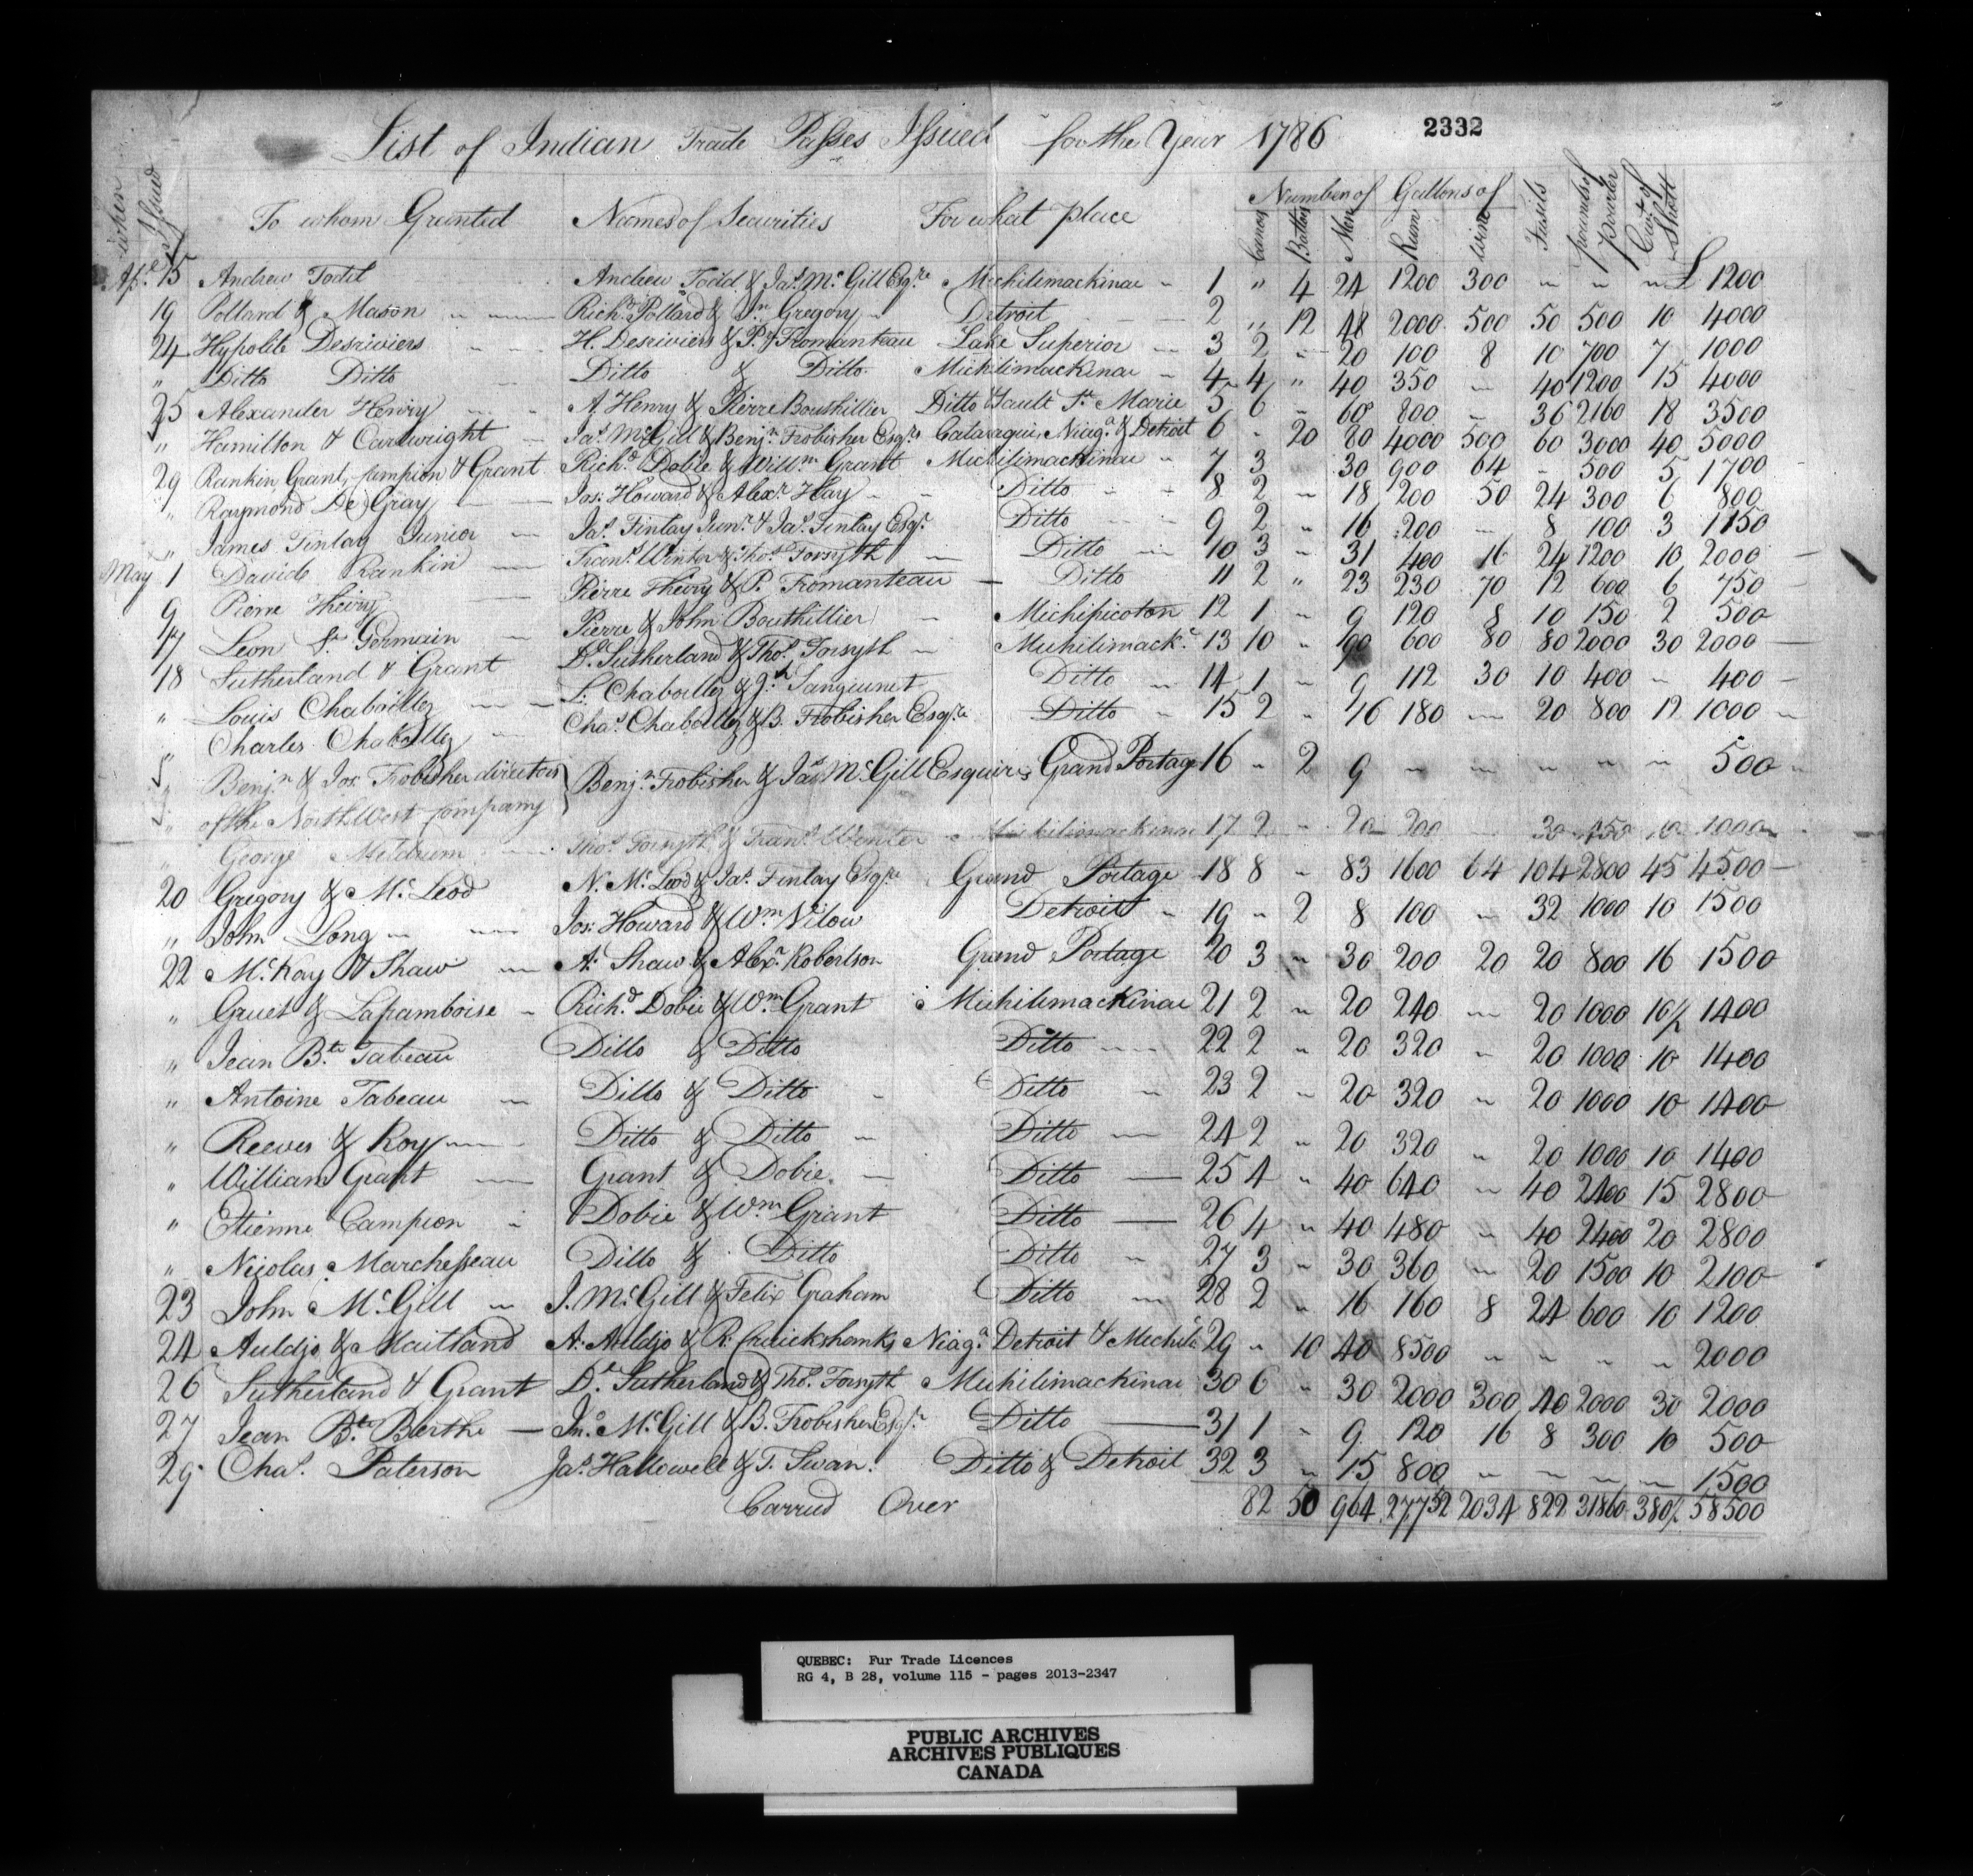 List of Indian Trade Passes Issued for the Year 1786 2332
when Issued To whom Granted Names of Securities For what place Number of Canoes Battoes Men Gallons of Rum Wine Fusils pounds of powder Cwt of Shott
Apl. 15 Andrew Todd Andrew Todd & Jas. McGill Esqre Michilimackinac 1 " 4 24 1200 300 " " " £ 1200
19 Pollard & Mason Richd. Pollard & Jn Gregory Detroit 2 " 12 48 2000 500 50 500 10 4000
24 Hypolite Desriviers H. Desriviers & P. Fromanteau Lake Superior 3 2 " 20 100 8 10 700 7 1000
" Ditto Ditto Ditto & Ditto Michilimackinac 4 4 " 40 350 " 40 1200 15 4000
25 Alexander Henry A. Henry & Pierre Bouthillier Ditto & Sault St. Marie 5 6 " 60 800 " 36 2160 18 3500
" Hamilton & Cartwright Jas. McGill & Benjn. Frobisher Esqrs Cataraqui, Niaga. & Detroit 6 " 20 80 4000 500 60 3000 40 5000
29 Rankin, Grant, Campion & Grant Richd. Dobie & Willm. Grant Michilimackinac 7 3 30 900 64 " 500 5 1700
" Raymond De Gray Jos. Howard & Alexr. Hay Ditto 8 2 " 18 200 50 24 300 6 800
" James Finlay Junior Jas. Finlay Junr. & Jas. Finlay Esqr. Ditto 9 2 " 16 200 " 8 100 3 1150
May 1 David Rankin Frans. Winter & Thos. Forsyth Ditto 10 3 " 31 400 16 24 1200 10 2000
9 Pierre Thiery Pierre Thiery & P. Fromanteau Ditto 11 2 " 23 230 70 12 600 6 750
17 Leon St. Germain Pierre & John Bouthillier Michipicoton 12 1 " 9 120 8 10 150 2 500
18 Sutherland & Grant Dl. Sutherland & Thos. Forsyth Michilimackc. 13 10 " 90 600 80 80 2000 30 2000
" Louis Chaboillez L. Chaboillez & J. Sanguinet Ditto 14 1 " 9 112 30 10 400 " 400
" Charles Chaboillez Chas. Chaboillez & B. Frobisher Esqre Ditto 15 2 " 16 180 " 20 800 12 1000
" Benjn. & Jos. Frobisher directors Benjn. Frobisher & Jas. McGill Esquires Grand Portage 16 " 2 9 " " " " " 500
" of the North West Company
" George Meldrum Thos. Forsyth & Frans. Winter Michilimackinac 17 2 " 20 200 30 10 1000
20 Gregory & McLeod N. McLeod & Jas. Finlay Esqre Grand Portage 18 8 " 83 1600 64 104 2800 45 4500
" John Long Jos: Howard & Wm. Nilow Detroit 19 " 2 8 100 " 32 1000 10 1500
22 McKay & Shaw A: Shaw & Alexr. Robertson Grand Portage 20 3 " 30 200 20 20 800 16 1500
" Gruet & Laframboise Richd. Dobie & Wm. Grant Michilimackinac 21 2 " 20 240 " 20 1000 10½ 1400
" Jean Bte. Tabeau Ditto & Ditto Ditto 22 2 " 20 320 " 20 1000 10 1400
" Antoine Tabeau Ditto & Ditto Ditto 23 2 " 20 320 " 20 1000 10 1400
" Reeves & Roy Ditto & Ditto Ditto 24 2 " 20 320 " 20 1000 10 1400
" William Grant Grant & Dobie Ditto 25 4 " 40 640 " 40 2400 15 2800
" Etienne Campion Dobie & Wm. Grant Ditto 26 4 " 40 480 " 40 2400 20 2800
" Nicolas Marchesseau Ditto & Ditto Ditto 27 3 " 30 360 " 20 1500 10 2100
23 John McGill J. McGill & Felix Graham Ditto 28 2 " 16 160 8 24 600 10 1200
24 Auldjo & Maitland A: Auldjo & R: Cruickshanks Niaga. Detroit & Michili. 29 " 10 40 8500 " " " " 2000
26 Sutherland & Grant Dl. Sutherland & Thos. Forsyth Michilimackinac 30 6 " 30 2000 300 40 2000 30 2000
27 Jean Bte. Berthe Jno. McGill & B. Frobisher Esqr. Ditto 31 1 " 9 120 16 8 300 10 500
29 Chas. Paterson Jas. Hallowell & T. Swan. Ditto & Detroit 32 3 " 15 800 " " " " 1500
Carried Over 82 50 964 27752 2034 822 31860 380½ 58500
QUEBEC: Fur Trade Licences
RG 4, B 28, volume 115 - pages 2013-2347
PUBLIC ARCHIVES
ARCHIVES PUBLIQUES
CANADA